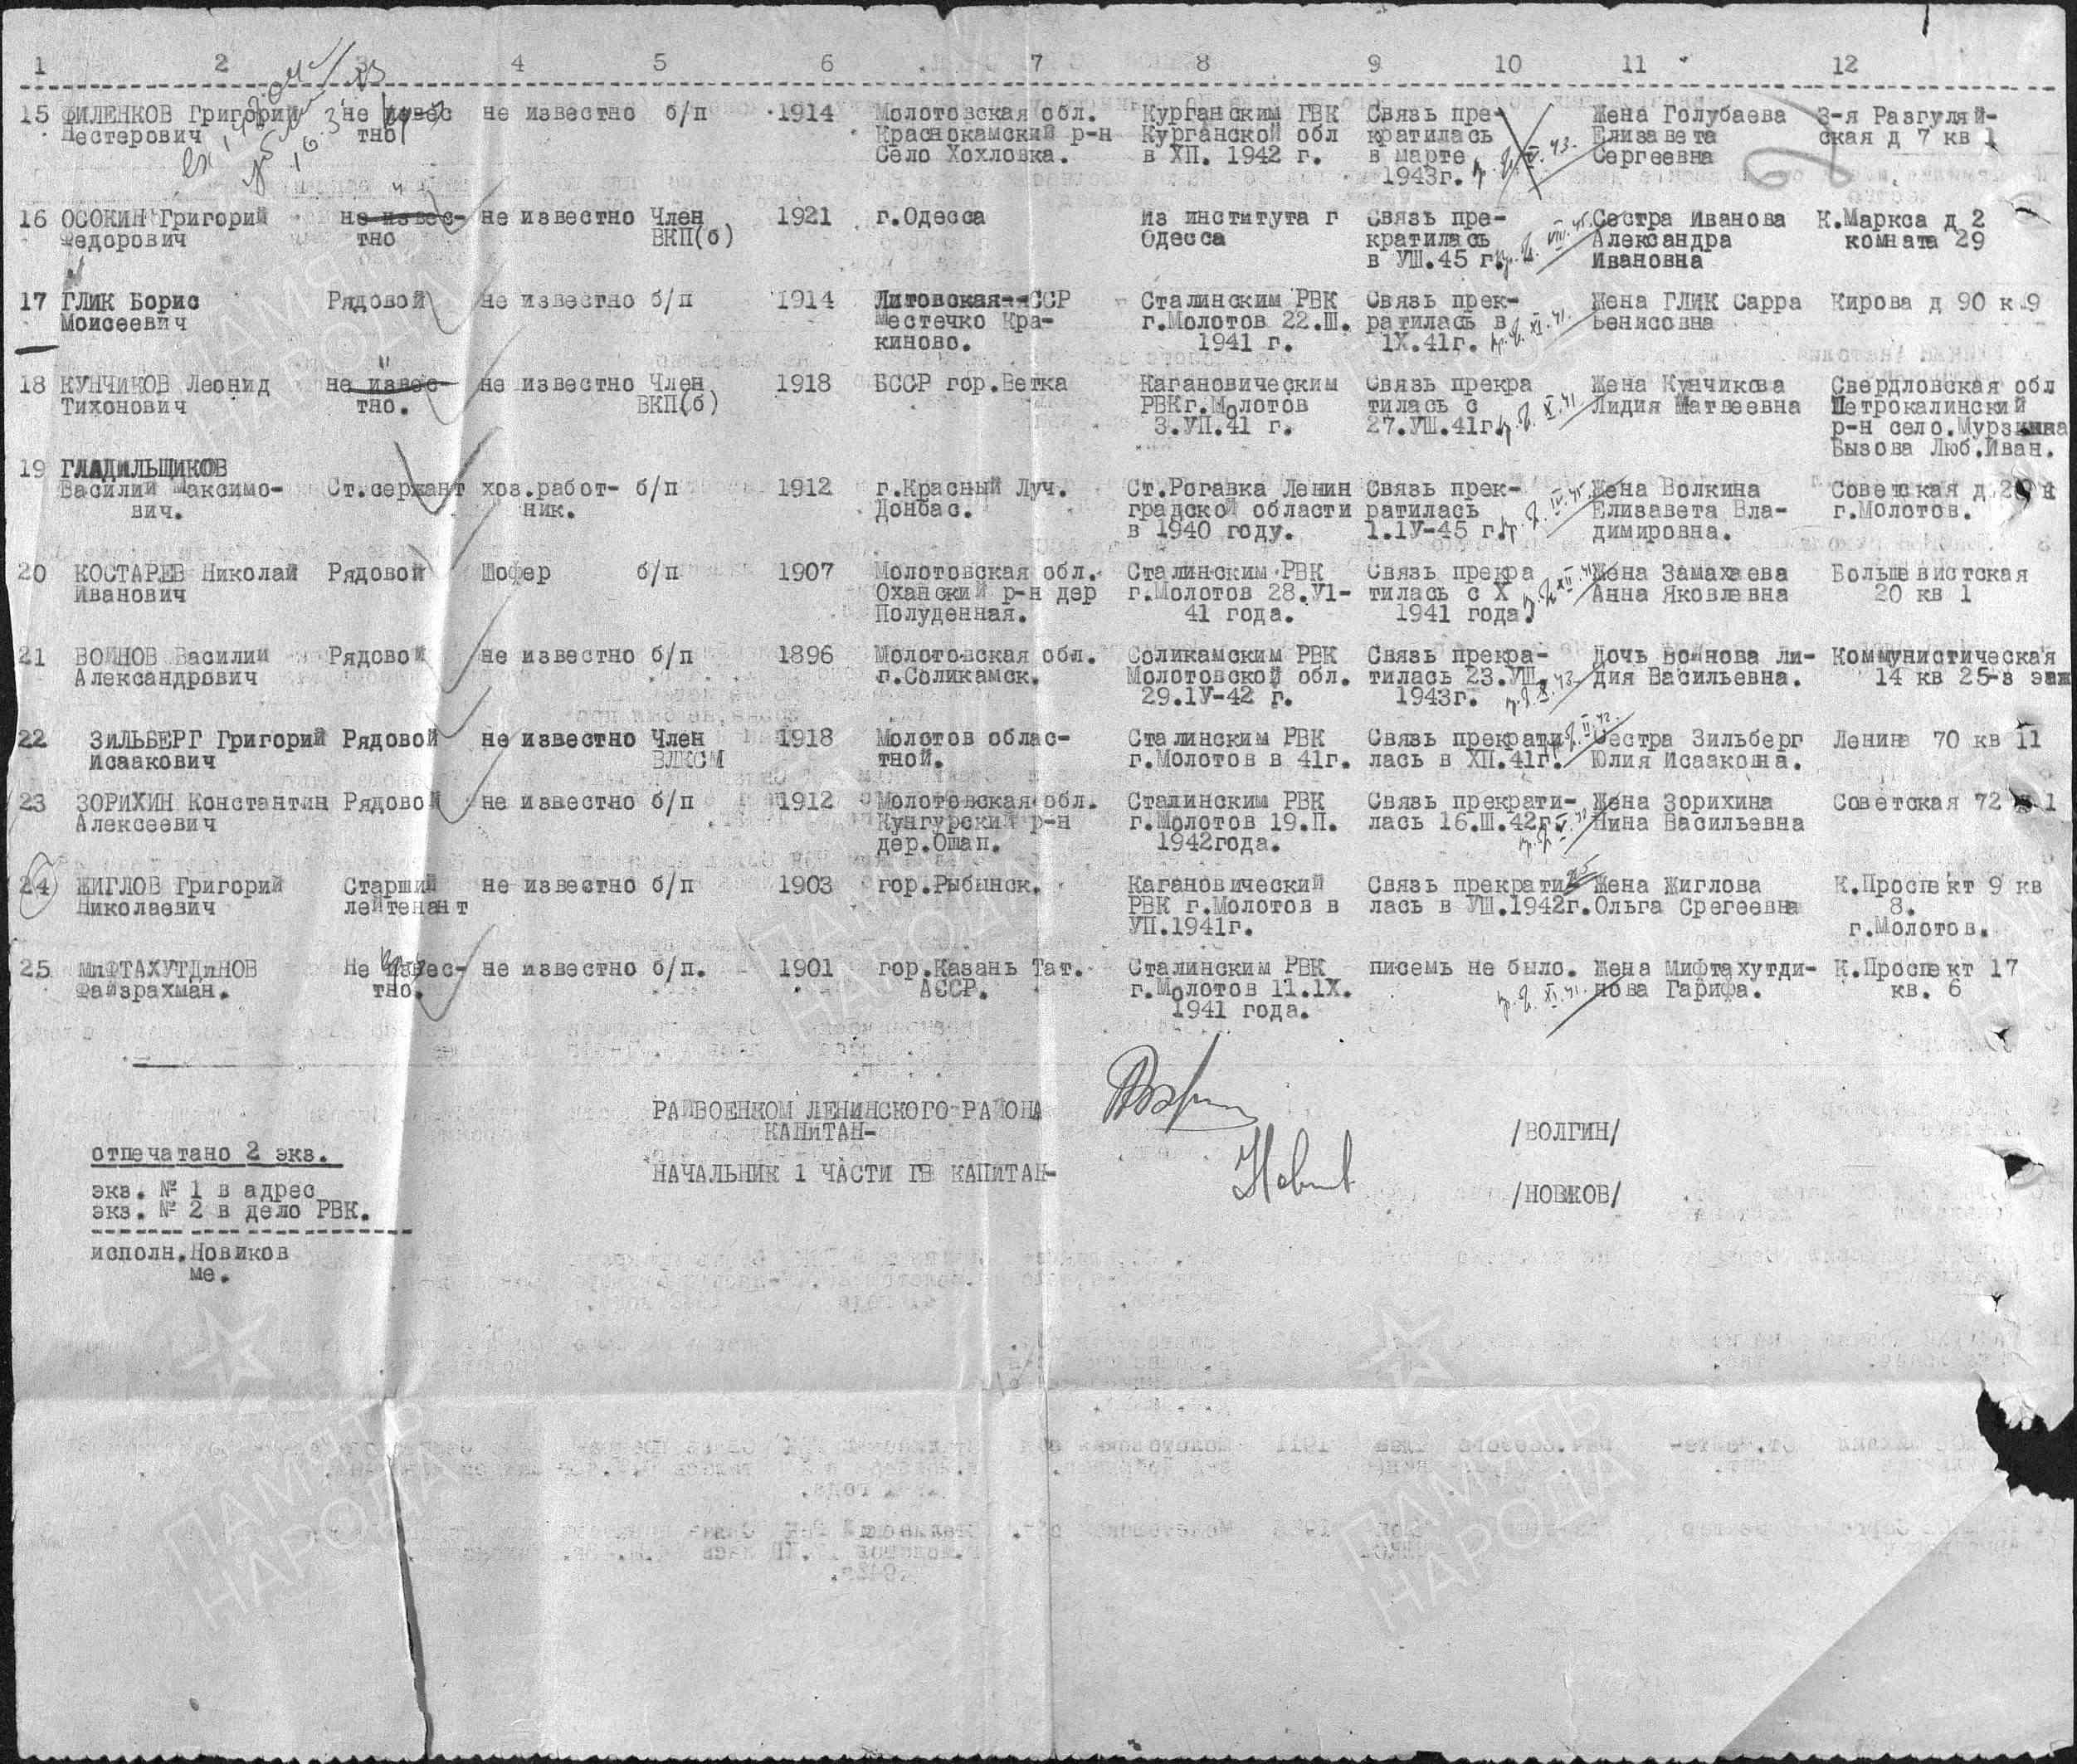 1 2 3 4 5 6 7 8 9 10 11 12
15 ФИЛЕНКОВ Григорий не извес не известно б/п 1914 Молотовская обл. Курганским ГВК Связь пре- Жена Голубаева 3-я Разгуляй-
Нестерович тно Краснокамский р-н Курганской обл кратилась Елизавета ская д 7 кв 1
Село Хохловка. в ХП. 1942 г. в марте Сергеевна
1943г.
16 ОСОКИН Григорий не извес- не известно Член 1921 г.Одесса Из института г Связь пре- Сестра Иванова К.Маркса д 2
Федорович тно ВКП(б) Одесса кратилась Александра комната 29
в УШ.45 г. Ивановна
17 ГЛИК Борис Рядовой не известно б/п 1914 Литовская ССР Сталинским РВК Связь прек- Жена ГЛИК Сарра Кирова д 90 к 9
Моисеевич Местечко Кра- г.Молотов 22.Ш. ратилась в Бенисовна
киново. 1941 г. 1Х.41г.
18 КУНЧИКОВ Леонид не извес- не известно Член 1918 БССР гор.Ветка Кагановическим Связь прекра Жена Кунчикова Свердловская обл
Тихонович тно. ВКП(б) РВКг.Молотов тилась с Лидия Матвеевна Петрокалинский
3.УП.41 г. 27.УШ.41г. р-н село.Мурзинка
Вызова Люб.Иван.
19 ГЛАДИЛЬЩИКОВ
Василий Максимо- Ст.сержант хоз.работ- б/п 1912 г.Красный Луч. Ст.Рогавка Ленин Связь прек- Жена Волкина Советская д
вич. ник. Донбас. градской области ратилась Елизавета Вла- г.Молотов.
в 1940 году. 1.1У-45 г. димировна.
20 КОСТАРЕВ Николай Рядовой Шофер б/п 1907 Молотовская обл. Сталинским РВК Связь прекра Жена Замахаева Большевистская
Иванович Оханский р-н дер г.Молотов 28.У1- тилась с Х Анна Яковлевна 20 кв 1
Полуденная. 41 года. 1941 года.
21 ВОИНОВ Василии Рядовой не известно б/п 1896 Молотовская обл. Соликамским РВК Связь прекра- Дочь Воинова Ли- Коммунистическая
Александрович г.Соликамск. Молотовской обл. тилась 23.УШ. дия Васильевна. 14 кв 25-в
29.1У-42 г. 1943г.
22 ЗИЛЬБЕРГ Григорий Рядовой не известно Член 1918 Молотов облас- Сталинским РВК Связь прекрати- Сестра Зильберг Ленина 70 кв 11
Исаакович ВЛКСМ тной. г.Молотов в 41г. лась в ХП.41г. Юлия Исааковна.
23 ЗОРИХИН Константин Рядовой не известно б/п 1912 Молотовская обл. Сталинским РВК Связь прекрати- Жена Зорихина Советская 72 1
Алексеевич Кунгурский р-н г.Молотов 19.П. лась 16.Ш.42г. Нина Васильевна
дер.Ошап. 1942года.
24 ЖИГЛОВ Григорий Старший не известно б/п 1903 гор.Рыбинск. Кагановический Связь прекрати- Жена Жиглова К.Проспект 9 кв
Николаевич лейтенант РВК г.Молотов в лась в УШ.1942г. Ольга Срегеевна 8.
УП.1941г. г.Молотов.
25 МИФТАХУТДИНОВ Не извес- не известно б/п. 1901 гор.Казань Тат. Сталинским РВК писемь не было. Жена Мифтахутди- К.Проспект 17
Файзрахман. тно. АССР. г.Молотов 11.1Х. нова Гарифа. кв. 6
1941 года.
РАЙВОЕНКОМ ЛЕНИНСКОГО РАЙОНА
КАПИТАН- /ВОЛГИН/
отпечатано 2 экз.
НАЧАЛЬНИК 1 ЧАСТИ КАПИТАН-
экз. № 1 в адрес /НОВИКОВ/
экз. № 2 в дело РВК.
исполн.Новиков
ме.
ПАМЯТЬ
НАРОДА